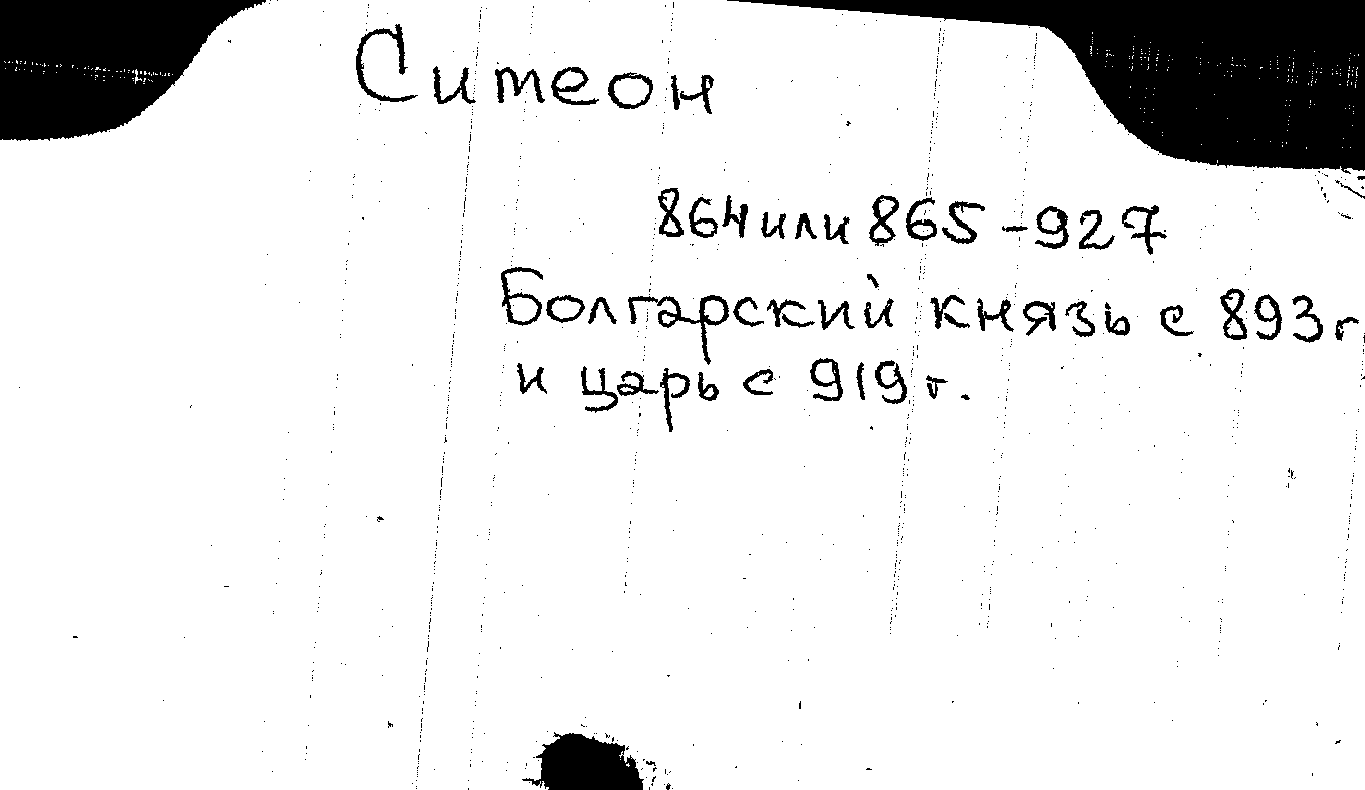 Симеон
864 или 865 - 927
Болгарский князь с 893 г
и царь с 919 г.